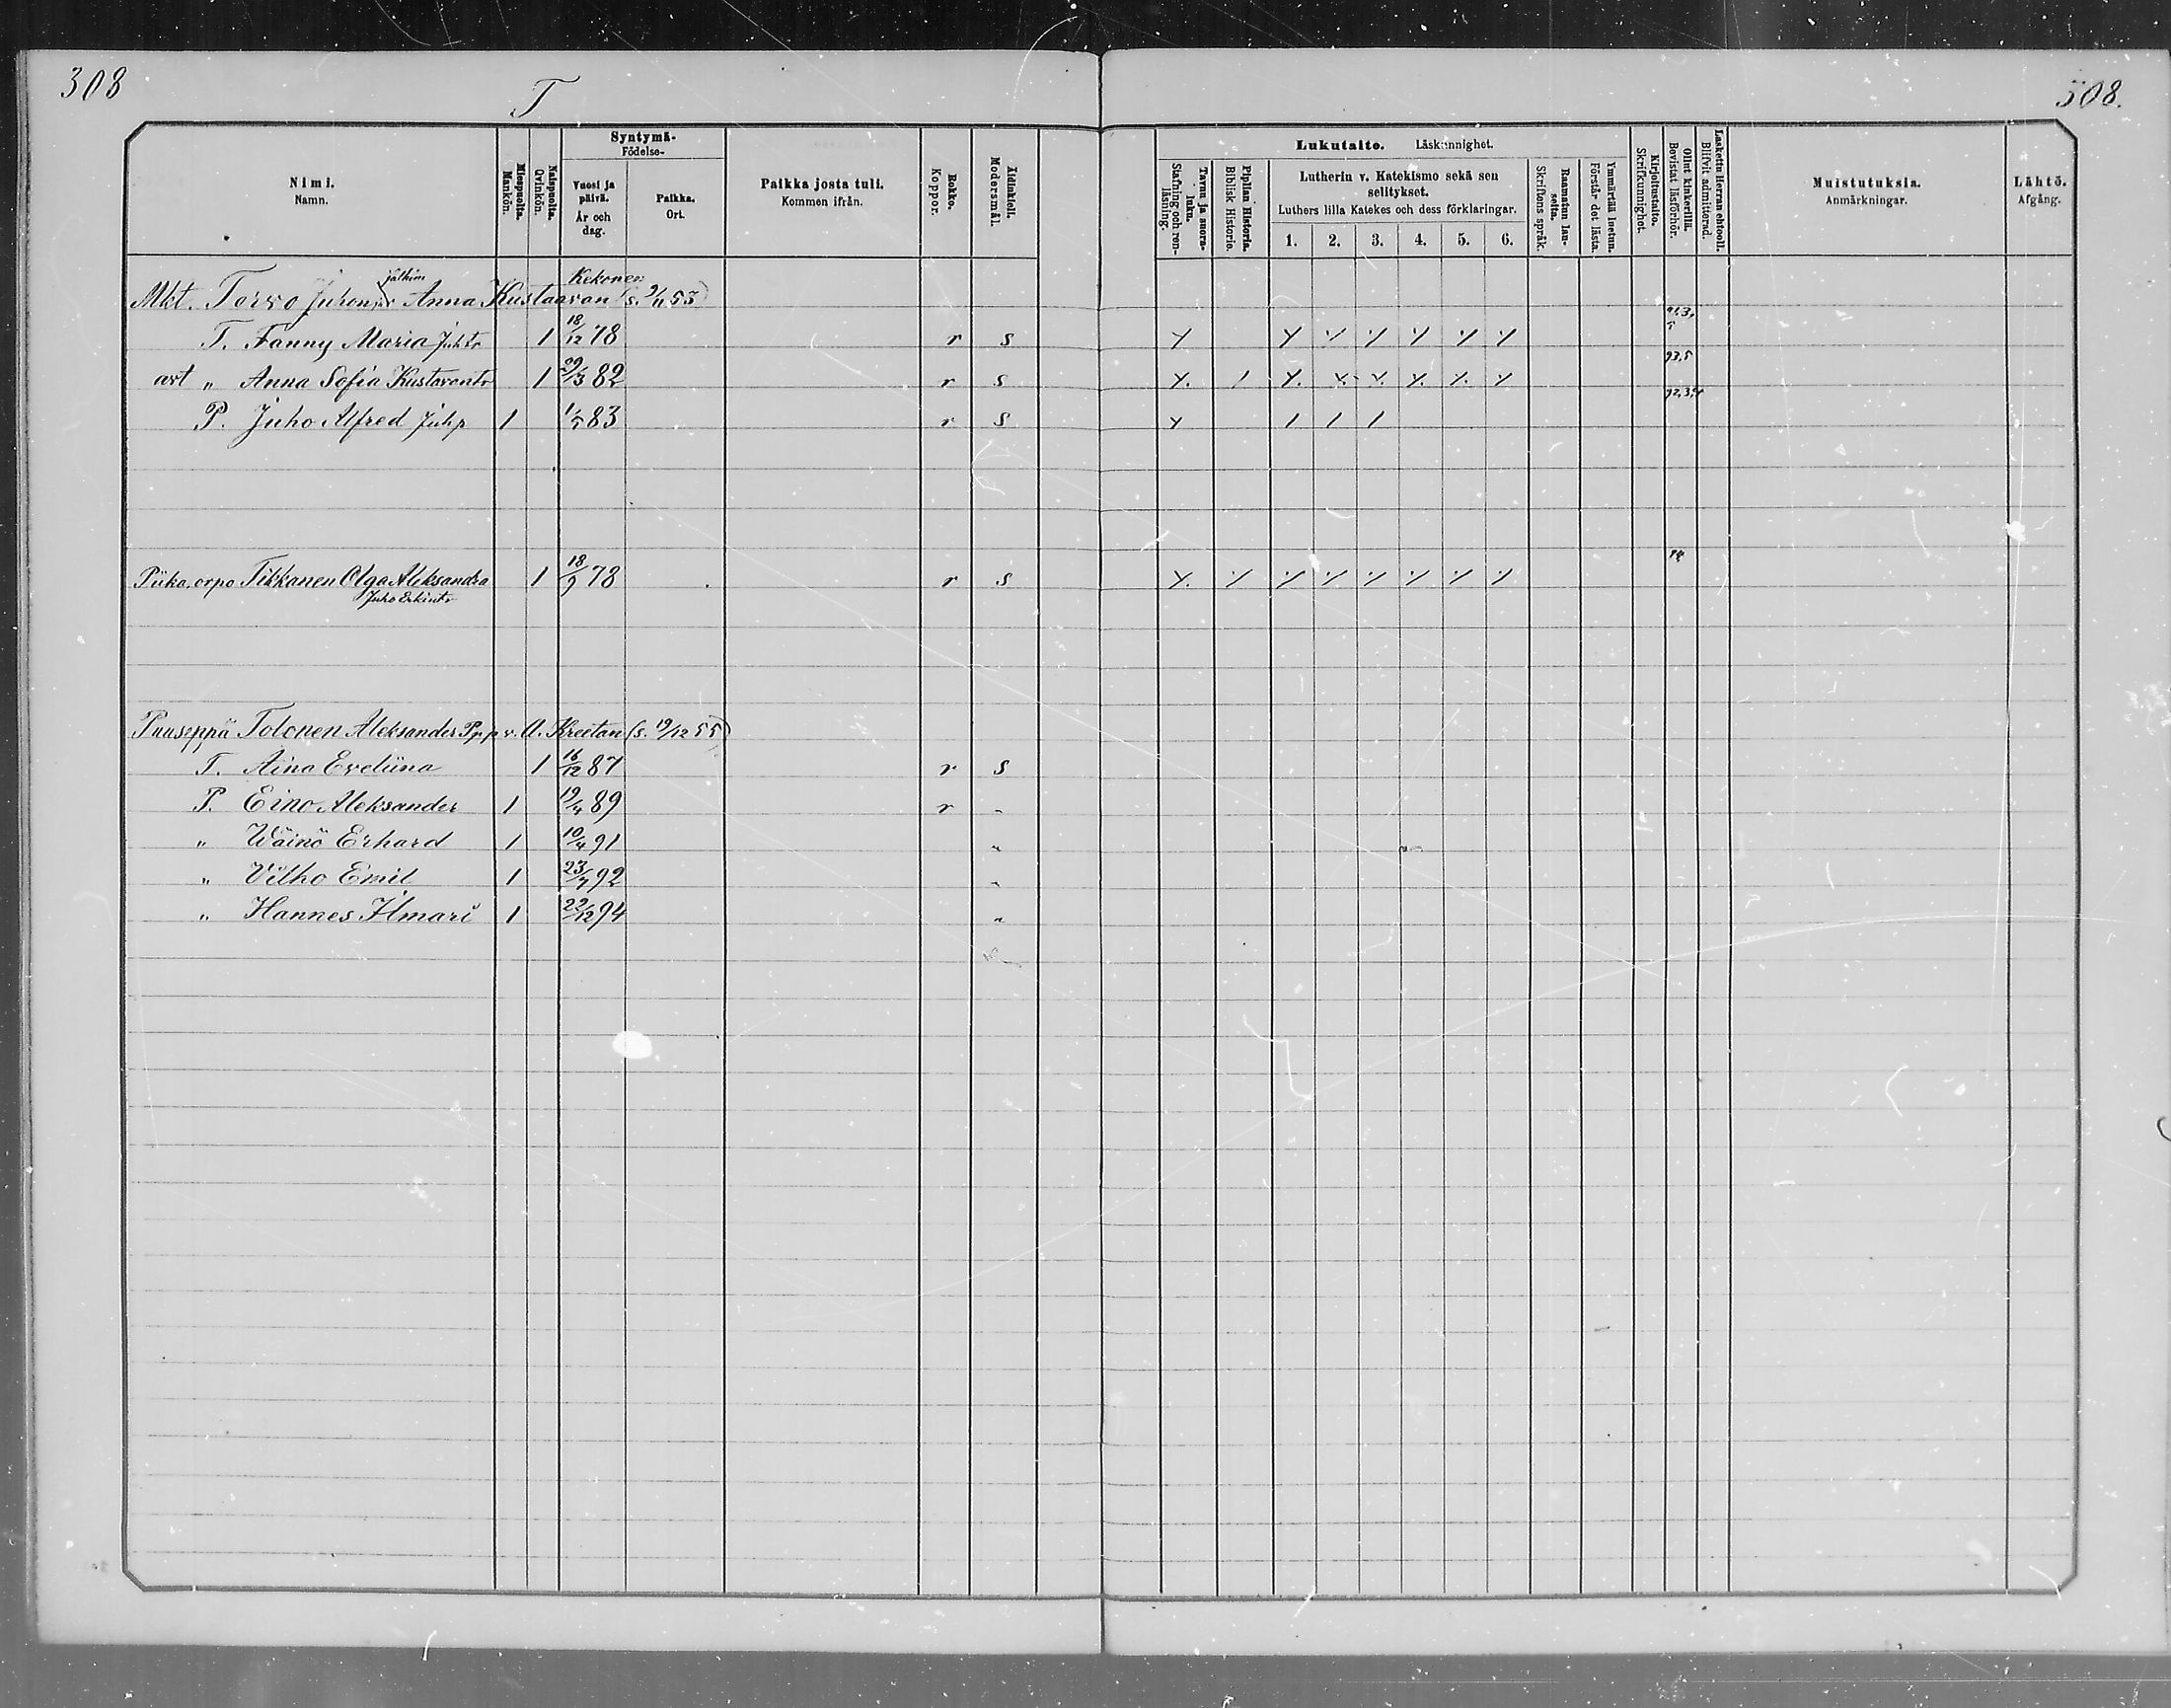 308
T
308.
Syntymä-
Födelse-
Lukutaito. Läskunnighet.
Nimi.
Namn.
Miespuolta.
Mankön.
Naispuolta.
Qvinkön.
Vuosi ja päivä.
År och dag.
Paikka.
Ort.
Paikka josta tuli.
Kommen ifrån.
Rokko.
Koppor.
Äidinkieli.
Modersmål.
Tavuu ja suora-luku.
Stafning och ren-läsning.
Piplian Historia.
Biblisk Historie.
Lutherin v. Katekismo sekä sen selitykset.
Luthers lilla Katekes och dess förklaringar.
1. 2. 3. 4. 5. 6.
Raamatun lau-seita.
Skriftens språk.
Ymmärtää luetun.
Förstår det lästa.
Kirjoitustaito.
Skrifkunnighet.
Ollut kinkerillä.
Bevistat läsförhör.
Laskettu Herran ehtooll.
Blifvit admitterad.
Muistutuksia.
Anmärkningar.
Lähtö.
Afgång.
Kekonen
Mkt. Torvo Juhon Anna Kustaavan (s. 9/11 53)
T. Fanny Maria Juhtr 1 18/12 78 r s
93,5
" Anna Sofia Kustavantr 1 29/3 82 r s
92,3,4
P. Juho Alfred Juhp 1 1/5 83 r s 1 1 1
Piika, orpo Tikkanen Olga Aleksandra 1 18/9 78 r s
Juho Erkintr
Puuseppä Tolonen Aleksander Pp. p. v. A. Kreetan (s. 19/12 55)
T. Aina Eveliina 1 16/12 87 r s
P. Eino Aleksander 1 19/4 89 r "
" Wäinö Erhard 1 10/4 91 "
" Vilho Emil 1 23/7 92 "
" Hannes Ilmari 1 22/12 94 "